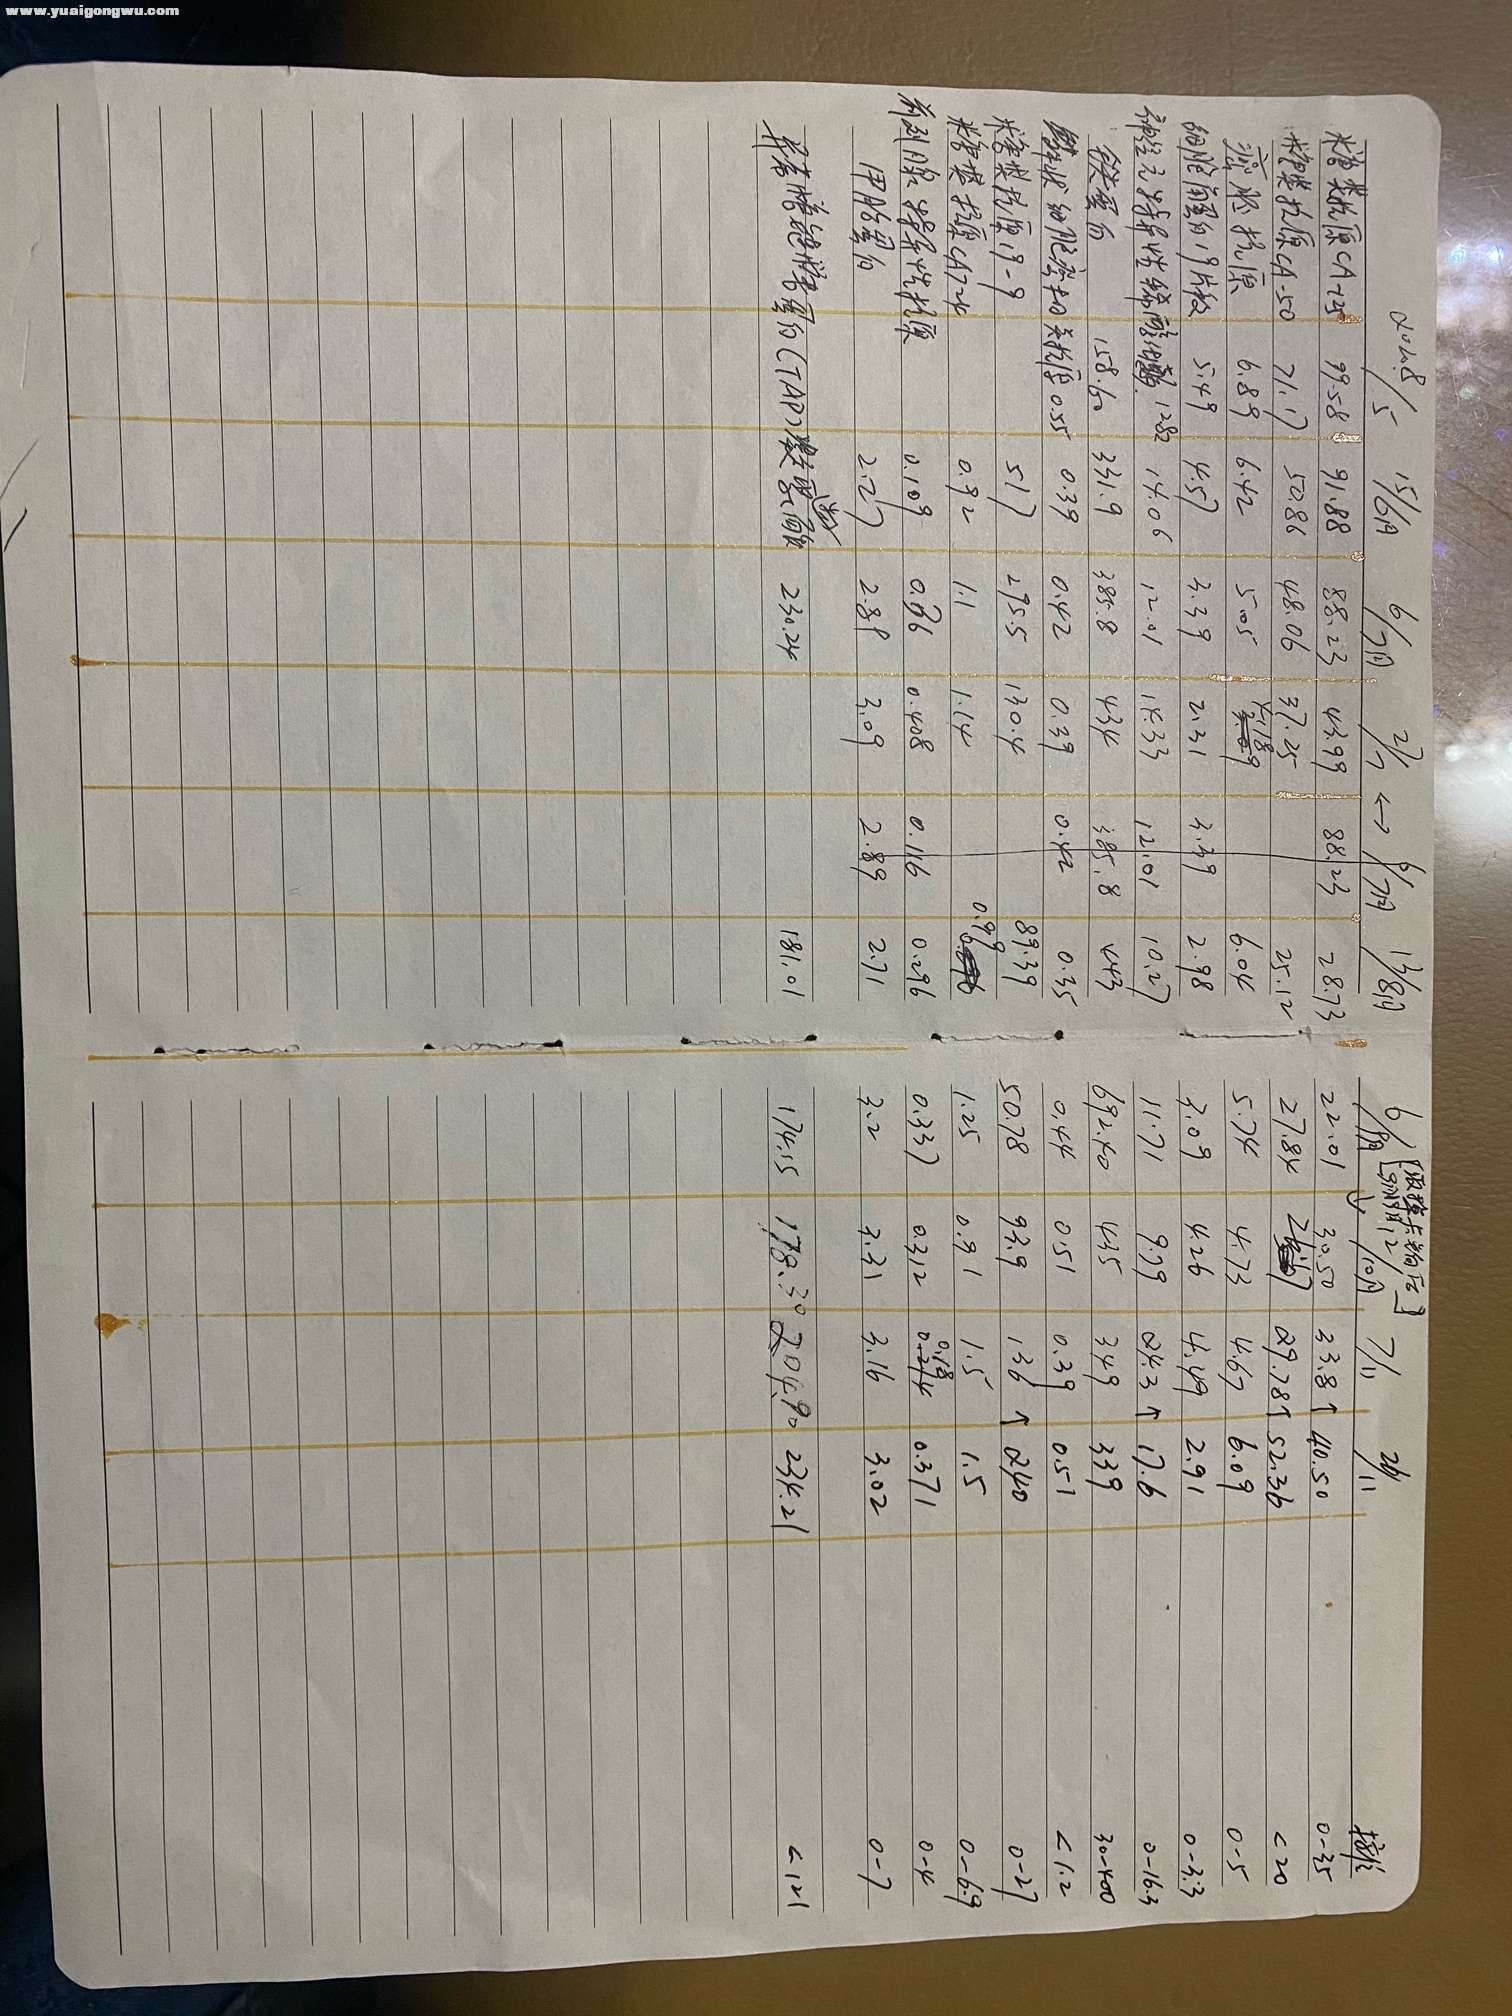 www.yuaigongwu.com
8/5 15/6月 6/7月 2/7 ↔ 6/7月 13/8月 6/ [服换卡铂后] /10月 7/11 26/11 标准
糖类抗原CA-125 99.58 91.88 88.23 43.99 88.23 28.73 22.01 30.50 33.8↑ 40.50 0-35
糖类抗原CA-50 71.17 50.86 48.06 37.25 25.12 27.84 29.78↑ 52.36 <20
癌胚抗原 6.89 6.42 5.05 6.04 5.74 4.73 4.67 6.09 0-5
细胞角蛋白19片段 5.49 4.57 3.39 2.31 3.39 2.98 3.09 4.26 4.49 2.91 0-3.3
神经元特异性烯醇化酶 12.82 14.06 12.01 14.33 12.01 10.27 11.71 9.79 24.3↑ 17.6 0-16.3
铁蛋白 158.60 331.9 385.8 434 385.8 443 692.40 435 349 339 30-400
鳞状细胞癌相关抗原 0.55 0.39 0.42 0.39 0.42 0.35 0.44 0.51 0.39 0.51 <1.2
糖类抗原19-9 517 295.5 130.4 89.39 50.78 93.9 136↑ 240 0-27
糖类抗原CA724 0.92 1.1 1.14 0.99 1.25 0.91 1.5 1.5 0-6.9
前列腺特异性抗原 0.109 0.408 0.116 0.296 0.337 0.312 0.18 0.371 0-4
甲胎蛋白 2.27 2.89 3.09 2.89 2.71 3.2 3.31 3.16 3.02 0-7
异常糖链糖蛋白(TAP)数 230.24 181.01 174.15 178.30 204.90 234.21 <121